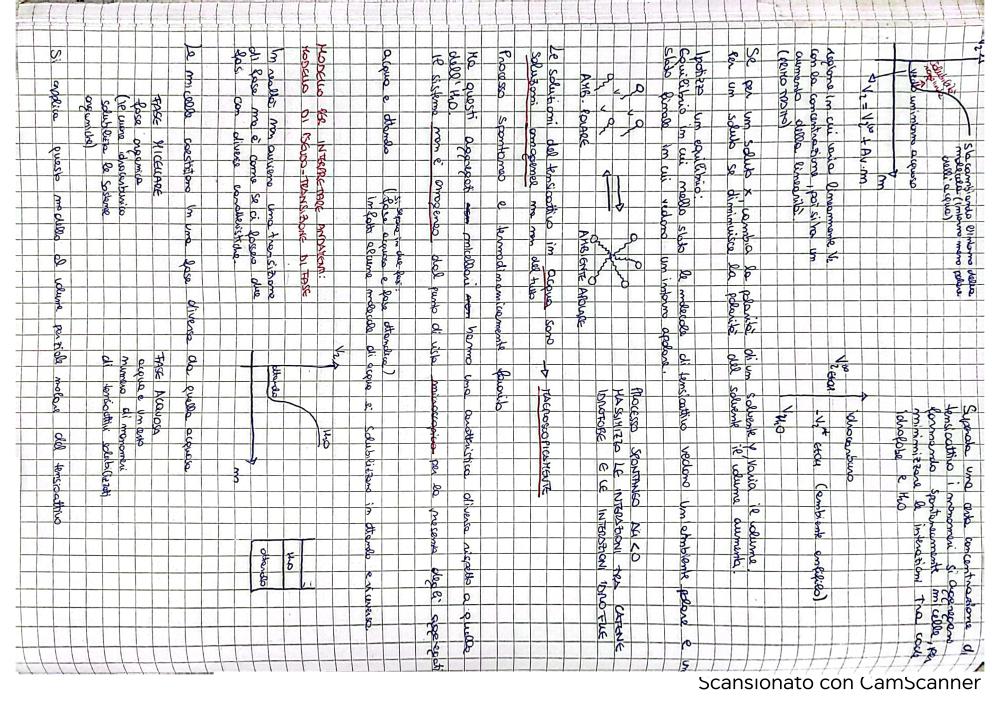 V2
sta cambiando l'intorno delle
molecole (intorno meno polare
dell'acqua)
solubilità
vedo un intorno acquoso
m
V2 = V2∞ + Av·m
regione in cui varia linearmente V2
con la concentrazione, poi si ha un
aumento della linearità.
Superata una certa concentrazione di
tensioattivo i monomeri si aggregano
formando spontaneamente micelle, per
minimizzare le interazioni tra code
idrofobe e H2O
idrocarburo
EtOH (ambiente anfifilo)
VH2O
Se per un soluto x, cambia la polarità di un solvente y, varia il volume.
Per un soluto se diminuisce la polarità del solvente il volume aumenta.
Ipotizzo un equilibrio:
Equilibrio in cui nello stato le molecole di tensioattivo vedono un'ambiente polare e un
stato finale in cui vedono un intorno apolare.
AMB. POLARE
AMBIENTE APOLARE
PROCESSO SPONTANEO ΔG<0
MASSIMIZZO LE INTERAZIONI TRA CATENE
IDROFOBE E LE INTERAZIONI IDROFILE
Le soluzioni del tensioattivo in acqua sono → MACROSCOPICAMENTE
soluzioni omogenee ma non del tutto
Processo spontaneo e termodinamicamente favorito
Ma questi aggregati micellari hanno una caratteristica diversa rispetto a quella
dell'H2O.
Il sistema non è omogeneo dal punto di vista microscopico per la presenza degli aggregati
acqua e ottanolo (si separa in due fasi:
fase acquosa e fase ottanolica)
infatti alcune molecole di acqua si solubilizzano in ottanolo e viceversa
MODELLO PER INTERPRETARE ANDAMENTI:
MODELLO DI PSEUDO-TRANSIZIONE DI FASE
In realtà non avviene una transizione
di fase ma è come se ci fossero due
fasi con diverse caratteristiche.
V2
H2O
ottanolo
m
H2O
ottanolo
Le micelle coesistono in una fase diversa da quella acquosa
FASE MICELLARE
fase organica
(le cui code idrocarburico
solubilizza le sostanze
organiche)
FASE ACQUOSA
acqua e un certo
numero di monomeri
di tensioattivi solubilizzati
Si applica questo modello al volume parziale molare del tensioattivo
Scansionato con CamScanner